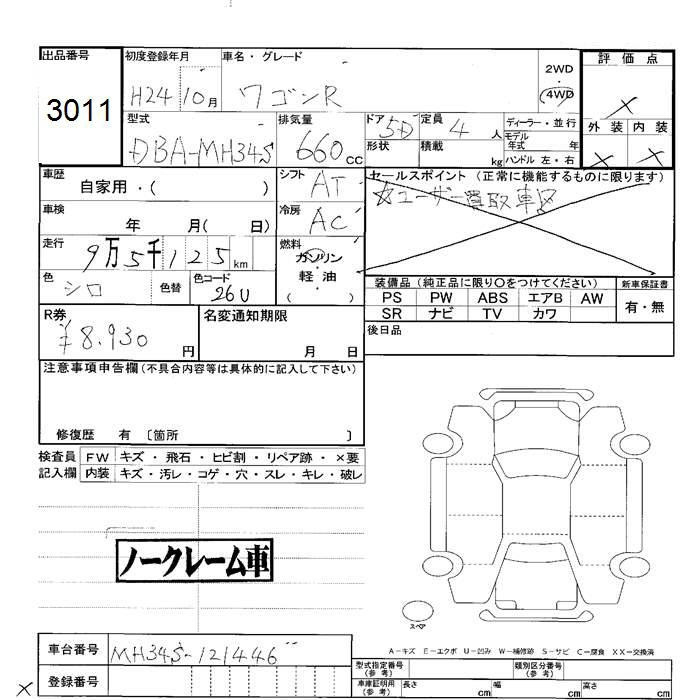 出品番号 初度登録年月 車名・グレード 2WD 評価点
3011 H24 10月 ワゴンR 4WD ×
型式 排気量 ドア 5D 定員 4人 ディーラー・並行 外装 内装
DBA-MH34S 660cc 形状 積載 kg モデル年式 年 × ×
ハンドル 左・右
車歴 シフト AT セールスポイント (正常に機能するものに限ります)
自家用・( ) ☆ユーザー買取車☆
車検 冷房 AC
年 月( 日)
走行 燃料
9万5千125km ガソリン・軽油・( )
色 シロ 色替 色コード 26U 装備品 (純正品に限り〇をつけてください) 新車保証書
PS PW ABS エアB AW 有・無
SR ナビ TV カワ
R券 名変通知期限 後日品
¥8.930円 月 日
注意事項申告欄(不具合内容等は具体的に記入して下さい)
修復歴 有 〔箇所 〕
検査員 FW キズ・飛石・ヒビ割・リペア跡・×要
記入欄 内装 キズ・汚レ・コゲ・穴・スレ・キレ・破レ
ノークレーム車
スペア
A-キズ E-エクボ U-凹み W-補修跡 S-サビ C-腐食 XX-交換済
車台番号 MH34S-121446
型式指定番号(参考) 類別区分番号(参考)
× 登録番号 車庫証明用(参考) 長さ cm 幅 cm 高さ cm